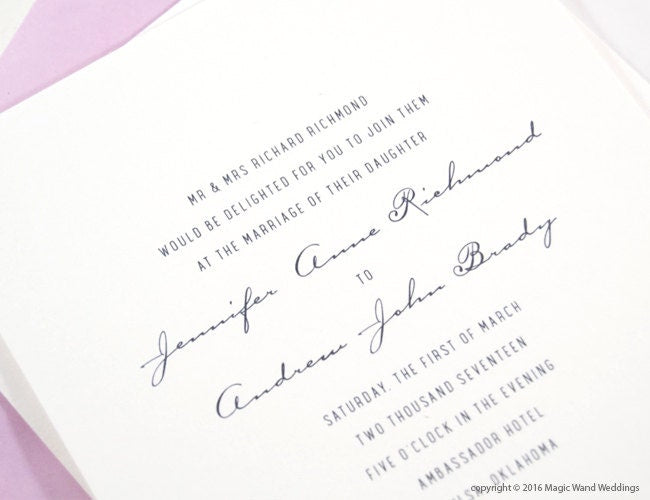 MR & MRS RICHARD RICHMOND
WOULD BE DELIGHTED FOR YOU TO JOIN THEM
AT THE MARRIAGE OF THEIR DAUGHTER
Jennifer Anne Richmond
TO
Andrew John Brady
SATURDAY, THE FIRST OF MARCH
TWO THOUSAND SEVENTEEN
FIVE O'CLOCK IN THE EVENING
AMBASSADOR HOTEL
OKLAHOMA
copyright © 2016 Magic Wand Weddings